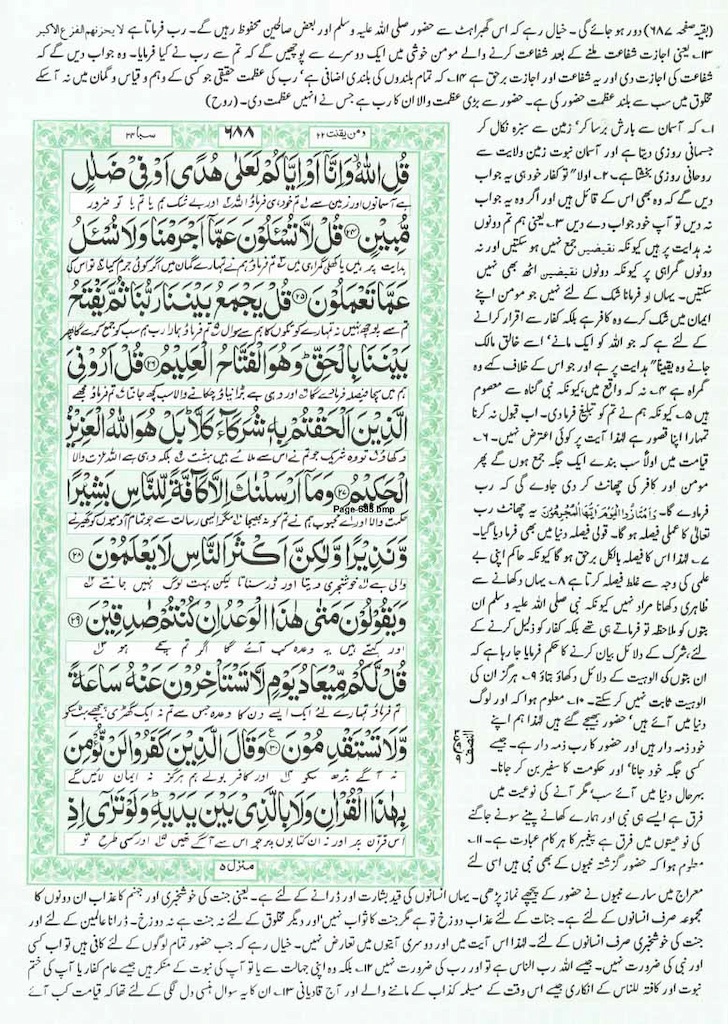 (بقیہ صفحہ ۶۸۷) دور ہو جائے گی۔ خیال رہے کہ اس گھبراہٹ سے حضور صلی اللہ علیہ وسلم اور بعض صالحین محفوظ رہیں گے۔ رب فرماتا ہے لا یحزنھم الفزع الاکبر
۱۳۔ یعنی اجازت شفاعت ملنے کے بعد شفاعت کرنے والے مومن خوشی میں ایک دوسرے سے پوچھیں گے کہ تم سے رب نے کیا فرمایا۔ وہ جواب دیں گے کہ
شفاعت کی اجازت دی اور یہ شفاعت اور اجازت برحق ہے ۱۴۔ کہ تمام بلندوں کی بلندی اضافی ہے' رب کی عظمت حقیقی جو کسی کے وہم و قیاس و گمان میں نہ آسکے
مخلوق میں سب سے بلند عظمت حضور کی ہے۔ حضور سے بڑی عظمت والا ان کا رب ہے جس نے انہیں عظمت دی۔ (روح)
ومن یقنت ۲۲
۶۸۸
سبا ۳۴
قُلِ اللّٰهُ وَاِنَّاۤ اَوْ اِیَّاكُمْ لَعَلٰى هُدًى اَوْ فِیْ ضَلٰلٍ
مُّبِیْنٍ ﴿۲۴﴾ قُلْ لَّا تُسْـَٔلُوْنَ عَمَّاۤ اَجْرَمْنَا وَلَا نُسْـَٔلُ
عَمَّا تَعْمَلُوْنَ ﴿۲۵﴾ قُلْ یَجْمَعُ بَیْنَنَا رَبُّنَا ثُمَّ یَفْتَحُ
بَیْنَنَا بِالْحَقِّ ؕ وَهُوَ الْفَتَّاحُ الْعَلِیْمُ ﴿۲۶﴾ قُلْ اَرُوْنِیَ
الَّذِیْنَ اَلْحَقْتُمْ بِهٖ شُرَكَآءَ كَلَّا ؕ بَلْ هُوَ اللّٰهُ الْعَزِیْزُ
الْحَكِیْمُ ﴿۲۷﴾ وَمَاۤ اَرْسَلْنٰكَ اِلَّا كَآفَّةً لِّلنَّاسِ بَشِیْرًا
Page-688.bmp
وَّنَذِیْرًا وَّلٰكِنَّ اَكْثَرَ النَّاسِ لَا یَعْلَمُوْنَ ﴿۲۸﴾
والی ہے خوشخبری دیتا اور ڈر سناتا لیکن بہت لوگ نہیں جانتے
وَیَقُوْلُوْنَ مَتٰى هٰذَا الْوَعْدُ اِنْ كُنْتُمْ صٰدِقِیْنَ ﴿۲۹﴾
اور کہتے ہیں یہ وعدہ کب آئے گا اگر تم سچے ہو
قُلْ لَّكُمْ مِّیْعَادُ یَوْمٍ لَّا تَسْتَاْخِرُوْنَ عَنْهُ سَاعَةً
تم فرماؤ تمہارے لئے ایک ایسے دن کا وعدہ جس سے تم نہ ایک گھڑی پیچھے ہٹ سکو
وَّلَا تَسْتَقْدِمُوْنَ ﴿۳۰﴾ وَقَالَ الَّذِیْنَ كَفَرُوْا لَنْ نُّؤْمِنَ
نہ آگے بڑھ سکو اور کافر بولے ہم ہرگز نہ ایمان لائیں گے
بِهٰذَا الْقُرْاٰنِ وَلَا بِالَّذِیْ بَیْنَ یَدَیْهِ ؕ وَلَوْ تَرٰۤى اِذِ
اس قرآن پر اور نہ ان کتابوں پر جو اس سے آگے تھیں اور کسی طرح تو
منزل ۵
۱۔ کہ آسمان سے بارش برسا کر' زمین سے سبزہ نکال کر
جسمانی روزی دیتا ہے اور آسمان نبوت زمین ولایت سے
روحانی روزی بخشتا ہے۔ ۲۔ اولاً تو کفار خود ہی یہ جواب
دیں گے کہ وہ بھی اس کے قائل ہیں اور اگر وہ یہ جواب
نہ دیں تو آپ خود جواب دے دیں ۳۔ یعنی ہم تم دونوں
نہ ہدایت پر ہیں کیونکہ نقیضین جمع نہیں ہو سکتیں اور نہ
دونوں گمراہی پر کیونکہ دونوں نقیضین اٹھ بھی نہیں
سکتیں۔ یہاں او فرمانا شک کے لئے نہیں جو مومن اپنے
ایمان میں شک کرے وہ کافر ہے بلکہ کفار سے اقرار کرانے
کے لئے ہے کہ جو اللہ کو ایک مانے' اسے خالق مالک
جانے وہ یقیناً" ہدایت پر ہے اور جو اس کے خلاف کہے وہ
گمراہ ہے ۴۔ نہ کہ واقع میں' کیونکہ نبی گناہ سے معصوم
ہیں ۵۔ کیونکہ ہم نے تم کو تبلیغ فرما دی۔ اب قبول نہ کرنا
تمہارا اپنا قصور ہے لہٰذا آیت پر کوئی اعتراض نہیں۔ ۶۔
قیامت میں اولاً سب بندے ایک جگہ جمع ہوں گے پھر
مومن اور کافر کی چھانٹ کر دی جاوے گی کہ رب
فرمادے گا۔ وَامْتَازُوا الْیَوْمَ اَیُّهَا الْمُجْرِمُوْنَ یہ چھانٹ رب
تعالیٰ کا عملی فیصلہ ہو گا۔ قولی فیصلہ دنیا میں بھی فرما دیا گیا۔
۷۔ لہٰذا اس کا فیصلہ بالکل برحق ہو گا کیونکہ حاکم اپنی بے
علمی کی وجہ سے غلط فیصلہ کرتا ہے ۸۔ یہاں دکھانے سے
ظاہری دکھانا مراد نہیں کیونکہ نبی صلی اللہ علیہ وسلم ان
بتوں کو ملاحظہ تو فرماتے ہی تھے بلکہ کفار کو ذلیل کرنے کے
لئے' شرک کے دلائل بیان کرنے کا حکم فرمایا جا رہا ہے کہ
ان بتوں کی الوہیت کے دلائل دکھاؤ بتاؤ ۹۔ ہرگز ان کی
الوہیت ثابت نہیں کر سکتے۔ ۱۰۔ معلوم ہوا کہ اور لوگ
دنیا میں آئے ہیں' حضور بھیجے گئے ہیں لہٰذا ہم اپنے
خود ذمہ دار ہیں اور حضور کا رب ذمہ دار ہے۔ جیسے
کسی جگہ خود جانا' اور حکومت کا سفیر بن کر جانا۔
بہرحال دنیا میں آئے سب' مگر آنے کی نوعیت میں
فرق ہے ایسے ہی نبی اور ہمارے کھانے پینے سونے جاگنے
کی نوعیتوں میں فرق ہے پیغمبر کا ہر کام عبادت ہے۔ ۱۱۔
معلوم ہوا کہ حضور گزشتہ نبیوں کے بھی نبی ہیں اسی لئے
النصف
معراج میں سارے نبیوں نے حضور کے پیچھے نماز پڑھی۔ یہاں انسانوں کی قید بشارت اور ڈرانے کے لئے ہے۔ یعنی جنت کی خوشخبری اور جہنم کا عذاب ان دونوں کا
مجموعہ صرف انسانوں کے لئے ہے۔ جنات کے لئے عذاب دوزخ تو ہے مگر جنت کا ثواب نہیں' اور دیگر مخلوق کے لئے نہ جنت ہے نہ دوزخ۔ ڈرانا عالمین کے لئے اور
جنت کی خوشخبری صرف انسانوں کے لئے۔ لہٰذا اس آیت میں اور دوسری آیتوں میں تعارض نہیں۔ خیال رہے کہ جب حضور تمام لوگوں کے لئے کافی ہیں تو اب کسی
اور نبی کی ضرورت نہیں۔ جیسے اللہ رب الناس ہے تو اور رب کی ضرورت نہیں ۱۲۔ بلکہ وہ اپنی جہالت سے یا تو آپ کی نبوت کے منکر ہیں جیسے عام کفار یا آپ کی ختم
نبوت اور کافتہ للناس کے انکاری جیسے اس وقت کے مسیلمہ کذاب کے ماننے والے اور آج قادیانی ۱۳۔ ان کا یہ سوال ہنسی دل لگی کے لئے تھا کہ قیامت کب آئے